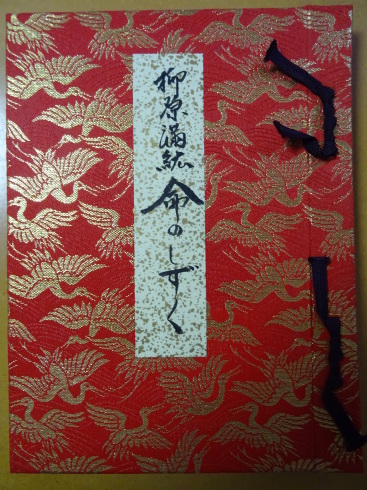 柳原満紘 命のしずく